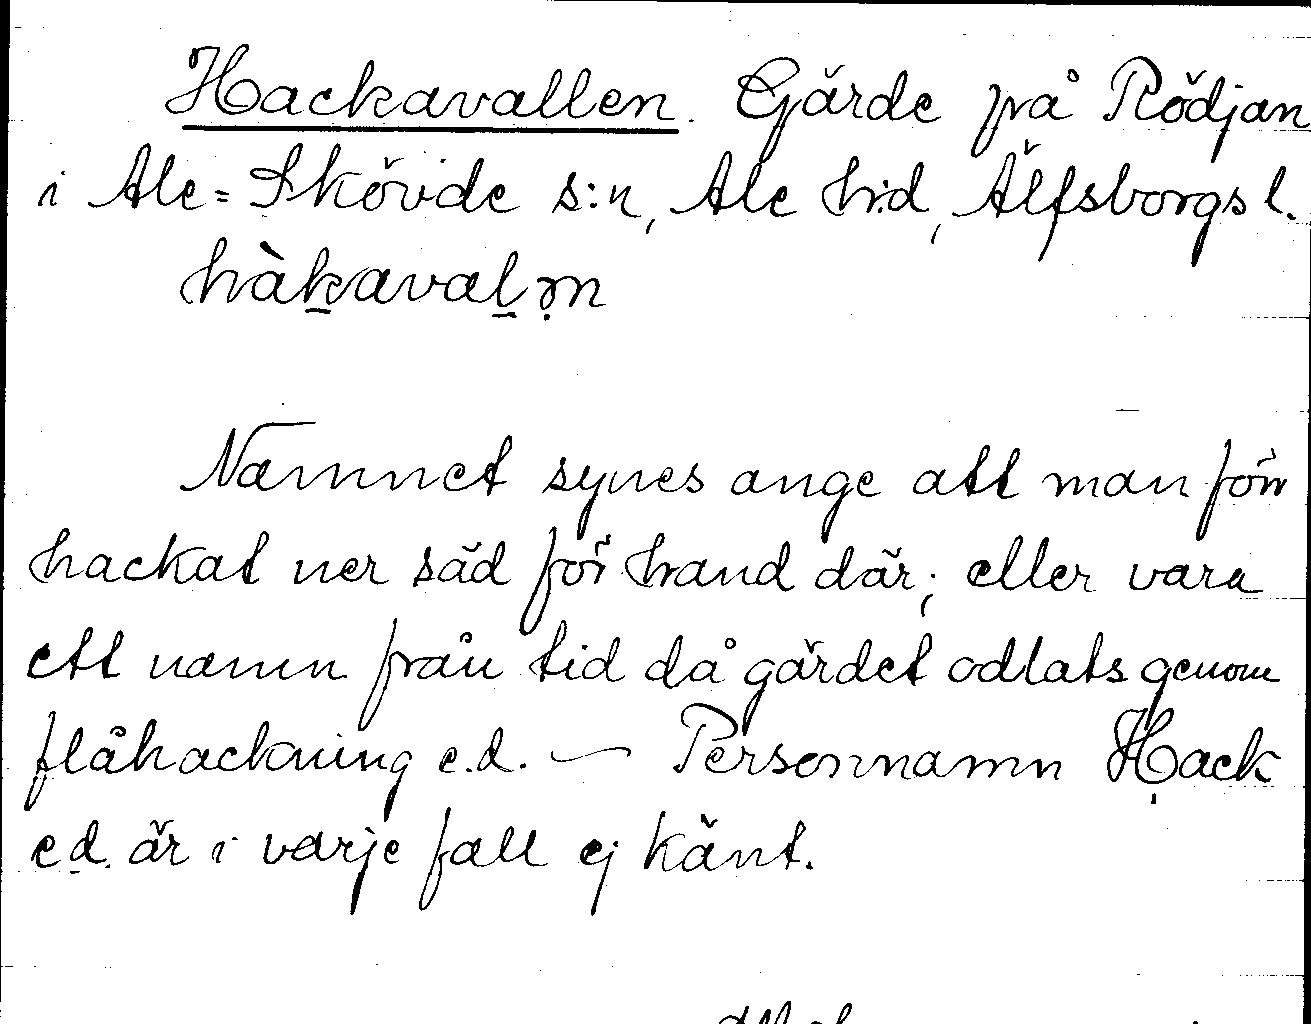 Hackavallen. Gärde på Rödjan
i Ale=Skövde s:n, Ale h:d, Älfsborgs l.
hàkavaln

Namnet synes ange att man förr
hackat ner säd för hand där; eller vara
ett namn från tid då gärdet odlats genom
flåhackning e.d. — Personnamn Hack
e.d. är i varje fall ej känt.